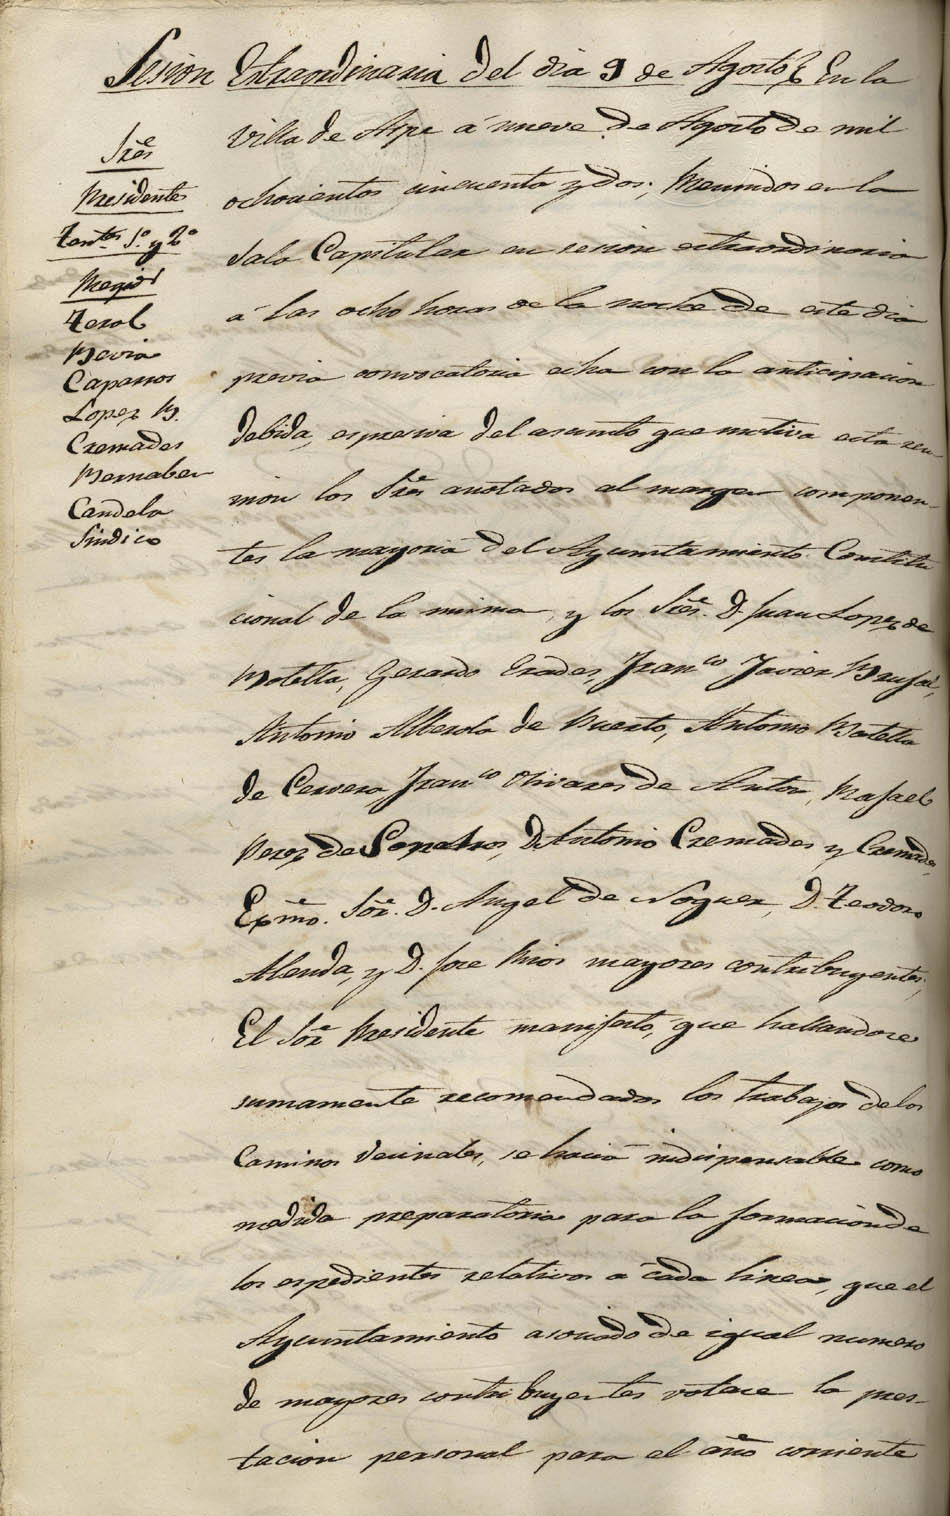 Sesion Extraordinaria del dia 9 de Agosto En la
Villa de Aspe á nueve de Agosto de mil
ochocientos cincuenta y dos; Reunidos en la
Sala Capitular en sesion extraordinaria
á las ocho horas de la noche de este dia
previa convocatoria echa con la anticipacion
debida, espresiva del asunto que motiva esta reu-
nion los Sres anotados al margen componen-
tes la mayoria del Ayuntamiento Constitu
cional de la misma, y los Sres. D. Juan Lopez de
Botella, Gerardo Erades, Franco Javier
Antonio Alberola de Puerto, Antonio Botella
de Cervera Franco Olivares de Anton, Rafael
Perez de D. Antonio Cremades y Cremades,
Exmo. Sor. D. Angel de Noguer, D. Teodoro
Alenda, y D. Jose Rios mayores contribuyentes;
El Sor Presidente manifestó, que hallandose
sumamente recomendados los trabajos de los
Caminos Vecinales, se hacia indispensable como
medida preparatoria para la formacion de
los espedientes relativos a cada linea, que el
Ayuntamiento asociado de igual numero
de mayores contribuyentes votase la pres-
tacion personal para el año corriente
Sres
Presidente
Tents 1º y 2º
Regids
Terol
Bevia
Caparros
Lopez B.
Cremades
Bernabeu
Candela
Sindico